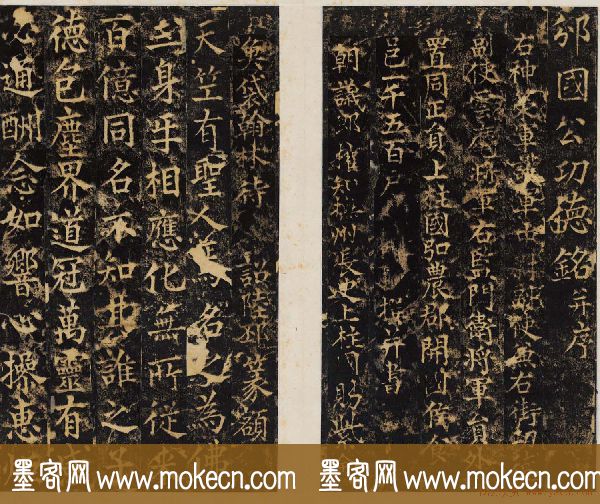 邠國公功德銘并序
右神策軍護軍中 使兼右街功
副使雲麾將軍右監門衛將軍員外
置同正員上柱國弘農郡開國侯食
邑一千五百戶 撰并書
朝議郎權知 州長史上柱國賜紫
魚袋翰林待 詔陸邳篆額
天竺有聖人焉名之為佛
身乎相應化無所從來
百億同名不知其誰之子
德包塵界道冠萬靈有
心通酬念如響心操惠
墨客网 www.mokecn.com 墨客网 www.mokecn.com